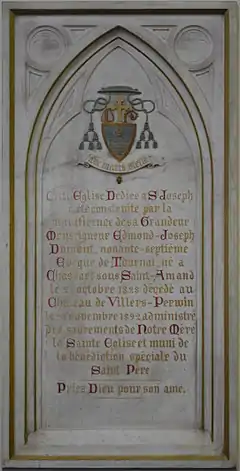 Cette Eglise Dediee a St Joseph
a été construite par la
munificence de sa Grandeur
Monseigneur Edmond-Joseph
Dumont, nonante-septième
Evêque de Tournai, né a
Chassart sous Saint-Amand
le 2 octobre 1828 décédé au
Château de Villers-Perwin
le novembre 1892 administré
des sacrements de Notre Mère
la Sainte Eglise et muni de
la bénédiction spéciale du
Saint Père
Priez Dieu pour son ame.